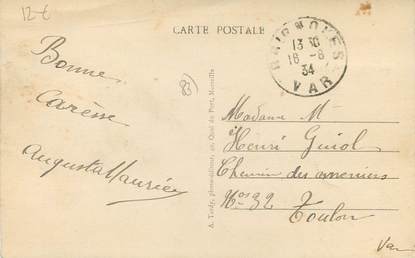 12€
CARTE POSTALE
BRIGNOLES
13 30
16-8
34
VAR
Bonne
Caresse
Augusta Maurice
83
A. Tardy, phototypeur, Quai du Port, Marseille
Madame M
Henri Guiol
Chemin des
Nos 32
Toulon
Var